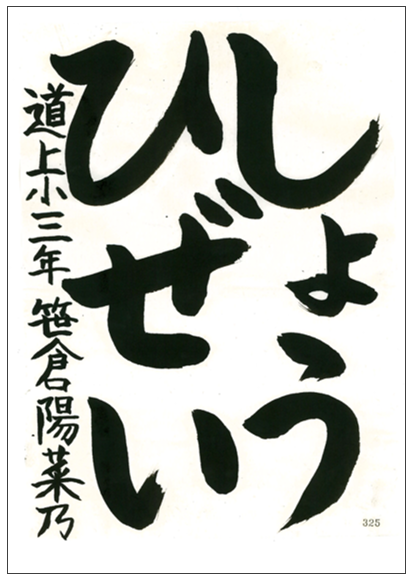 しょう
ひぜい
道上小三年 笹倉陽菜乃
325